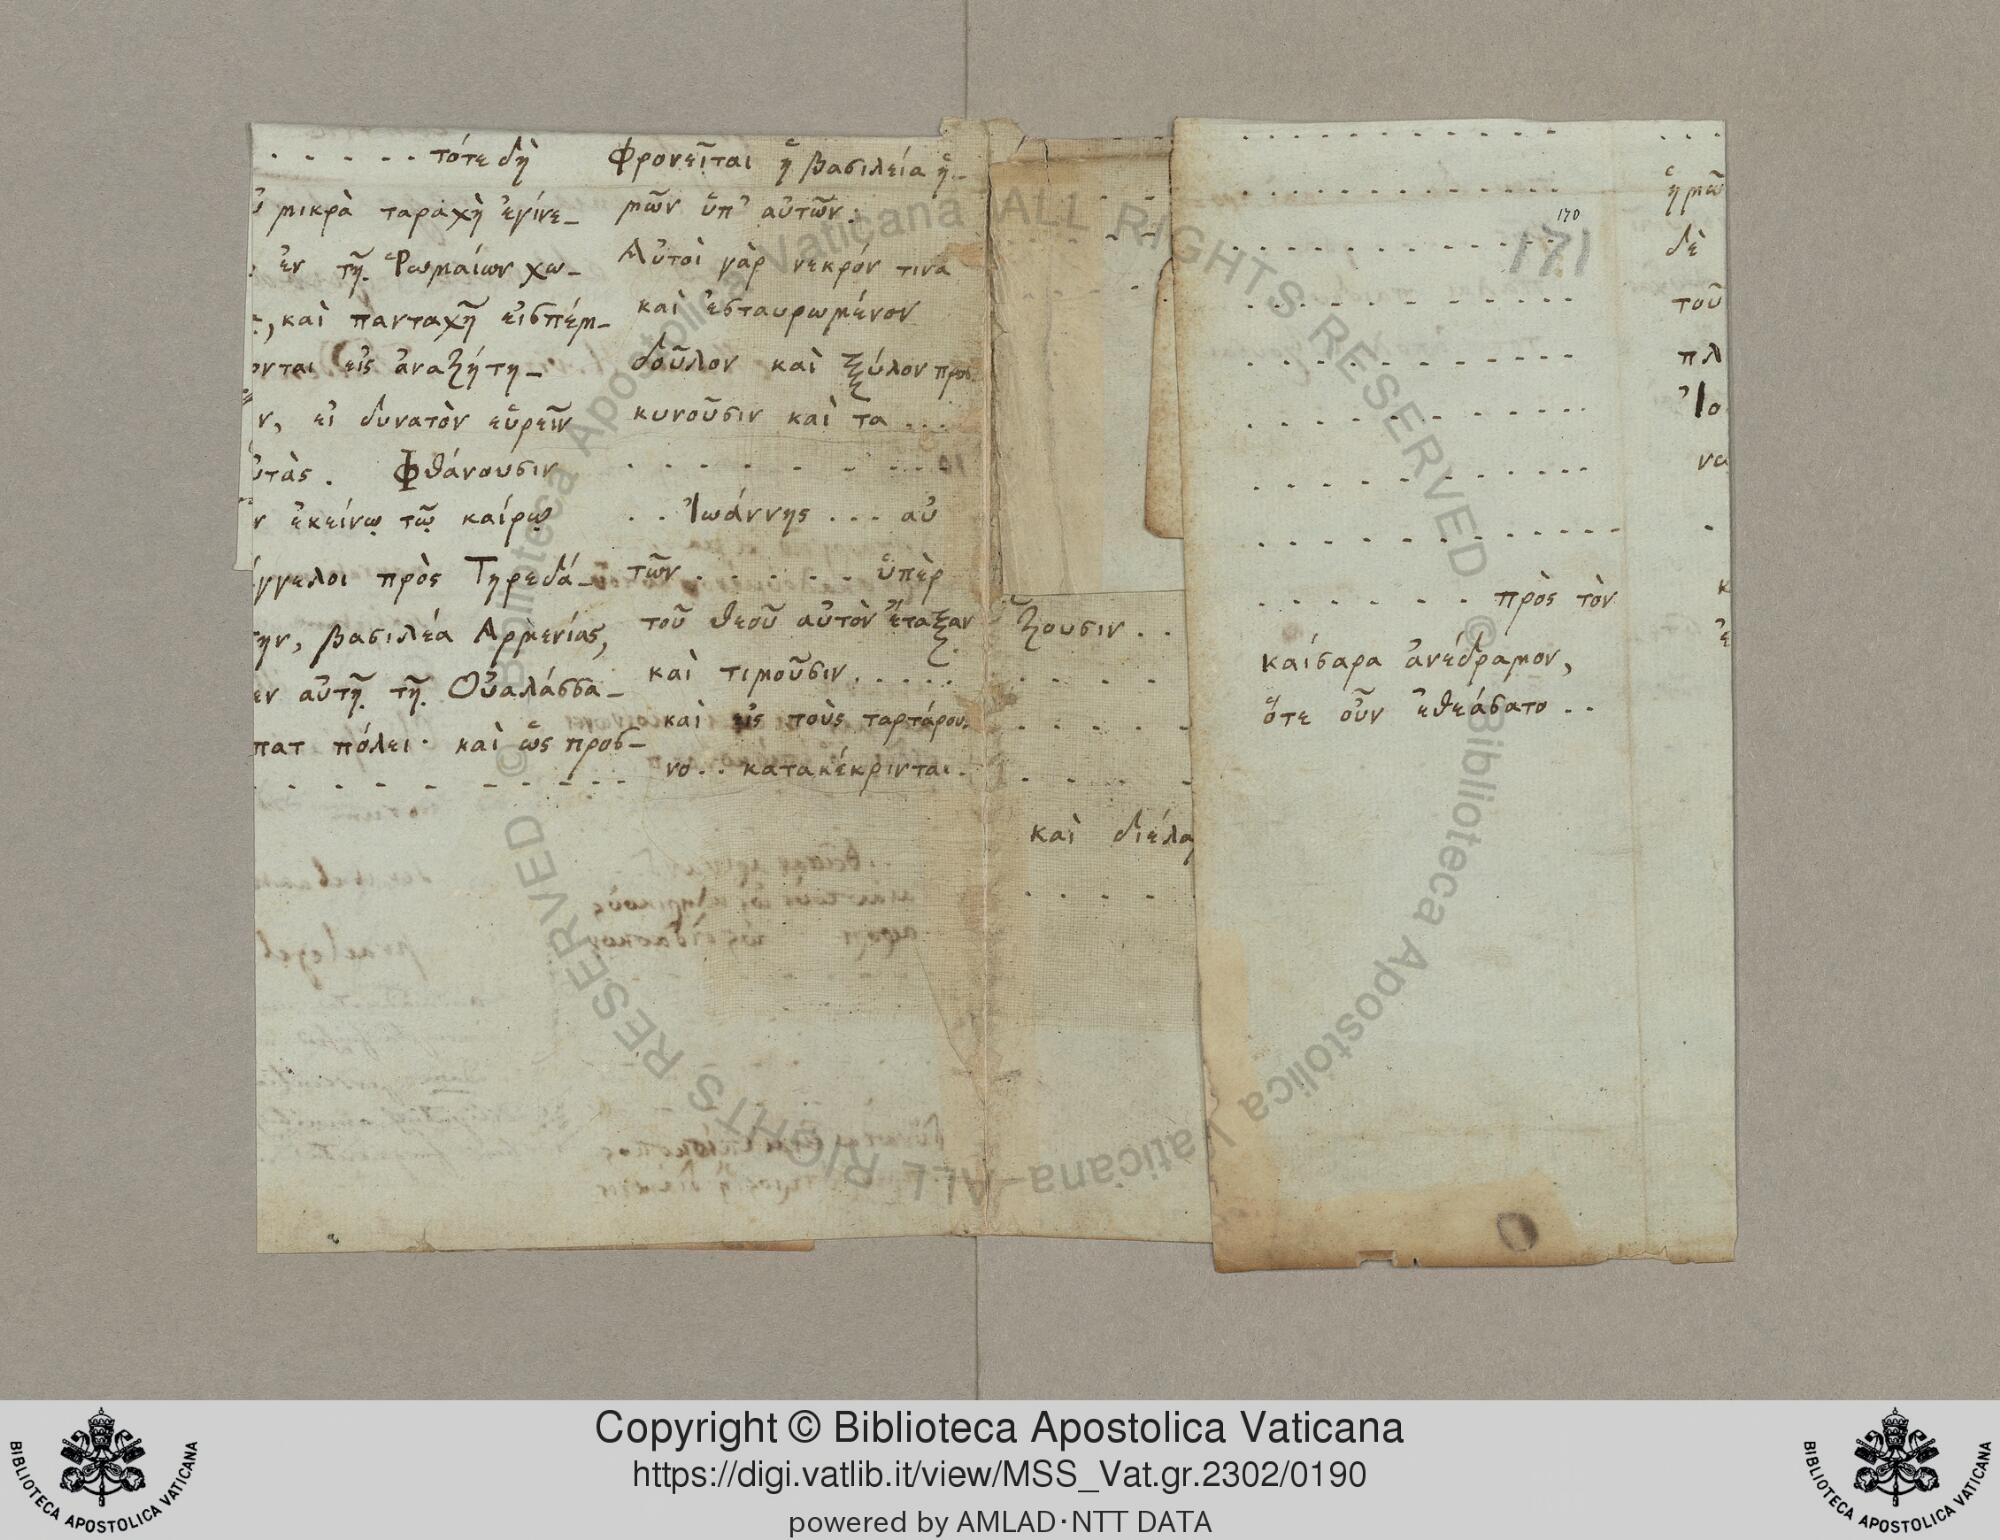 . . . . . . τότε δὴ
μικρὰ ταραχὴ ἐγίνε-
ἐν τῇ Ῥωμαίων χω-
καὶ πανταχῆ εἰσπέμ-
νται εἰς ἀναζήτη-
ν, εἰ δυνατὸν εὑρεῖν
υτὰς. Φθάνουσιν
ν ἐκείνῳ τῷ καίρῳ
γγελοι πρὸς Τηρεδά-
ην, βασιλέα Αρμενίας,
εν αὐτῇ τῇ Οὐαλάσσα-
πατ πόλει· καὶ ὡς προσ-
. . . . . . . . . .
Φρονεῖται ἡ βασιλεία ἡ-
μῶν ὑπ' αὐτῶν.
Αὐτοὶ γὰρ νεκρόν τινα
καὶ ἐσταυρωμένον
δοῦλον καὶ ξύλον προσ
κυνοῦσιν καὶ τα ...
. . . . . . . . .
. . Ἰωάννης ... αὐ
τῶν . . . . . . ὑπὲρ
τοῦ θεοῦ αὐτὸν ἔταξαν
καὶ τιμοῦσιν. . . . .
καὶ εἰς τοὺς ταρτάρου.
νο.. κατακέκρινται.
ζουσιν . .
. . . .
. . . .
. . . .
καὶ διέλα
. . . . .
170
171
. . . . . . πρὸς τὸν
καίσαρα ἀνέδραμον,
ὅτε οὖν ἐθεάσατο ..
ἡμῶ
δὲ
τοῦ
πλ
Ἰο
να
κ
ἐ
Copyright © Biblioteca Apostolica Vaticana
https://digi.vatlib.it/view/MSS_Vat.gr.2302/0190
powered by AMLAD·NTT DATA
BIBLIOTECA APOSTOLICA VATICANA
BIBLIOTECA APOSTOLICA VATICANA
© Biblioteca Apostolica Vaticana ALL RIGHTS RESERVED
© Biblioteca Apostolica Vaticana ALL RIGHTS RESERVED